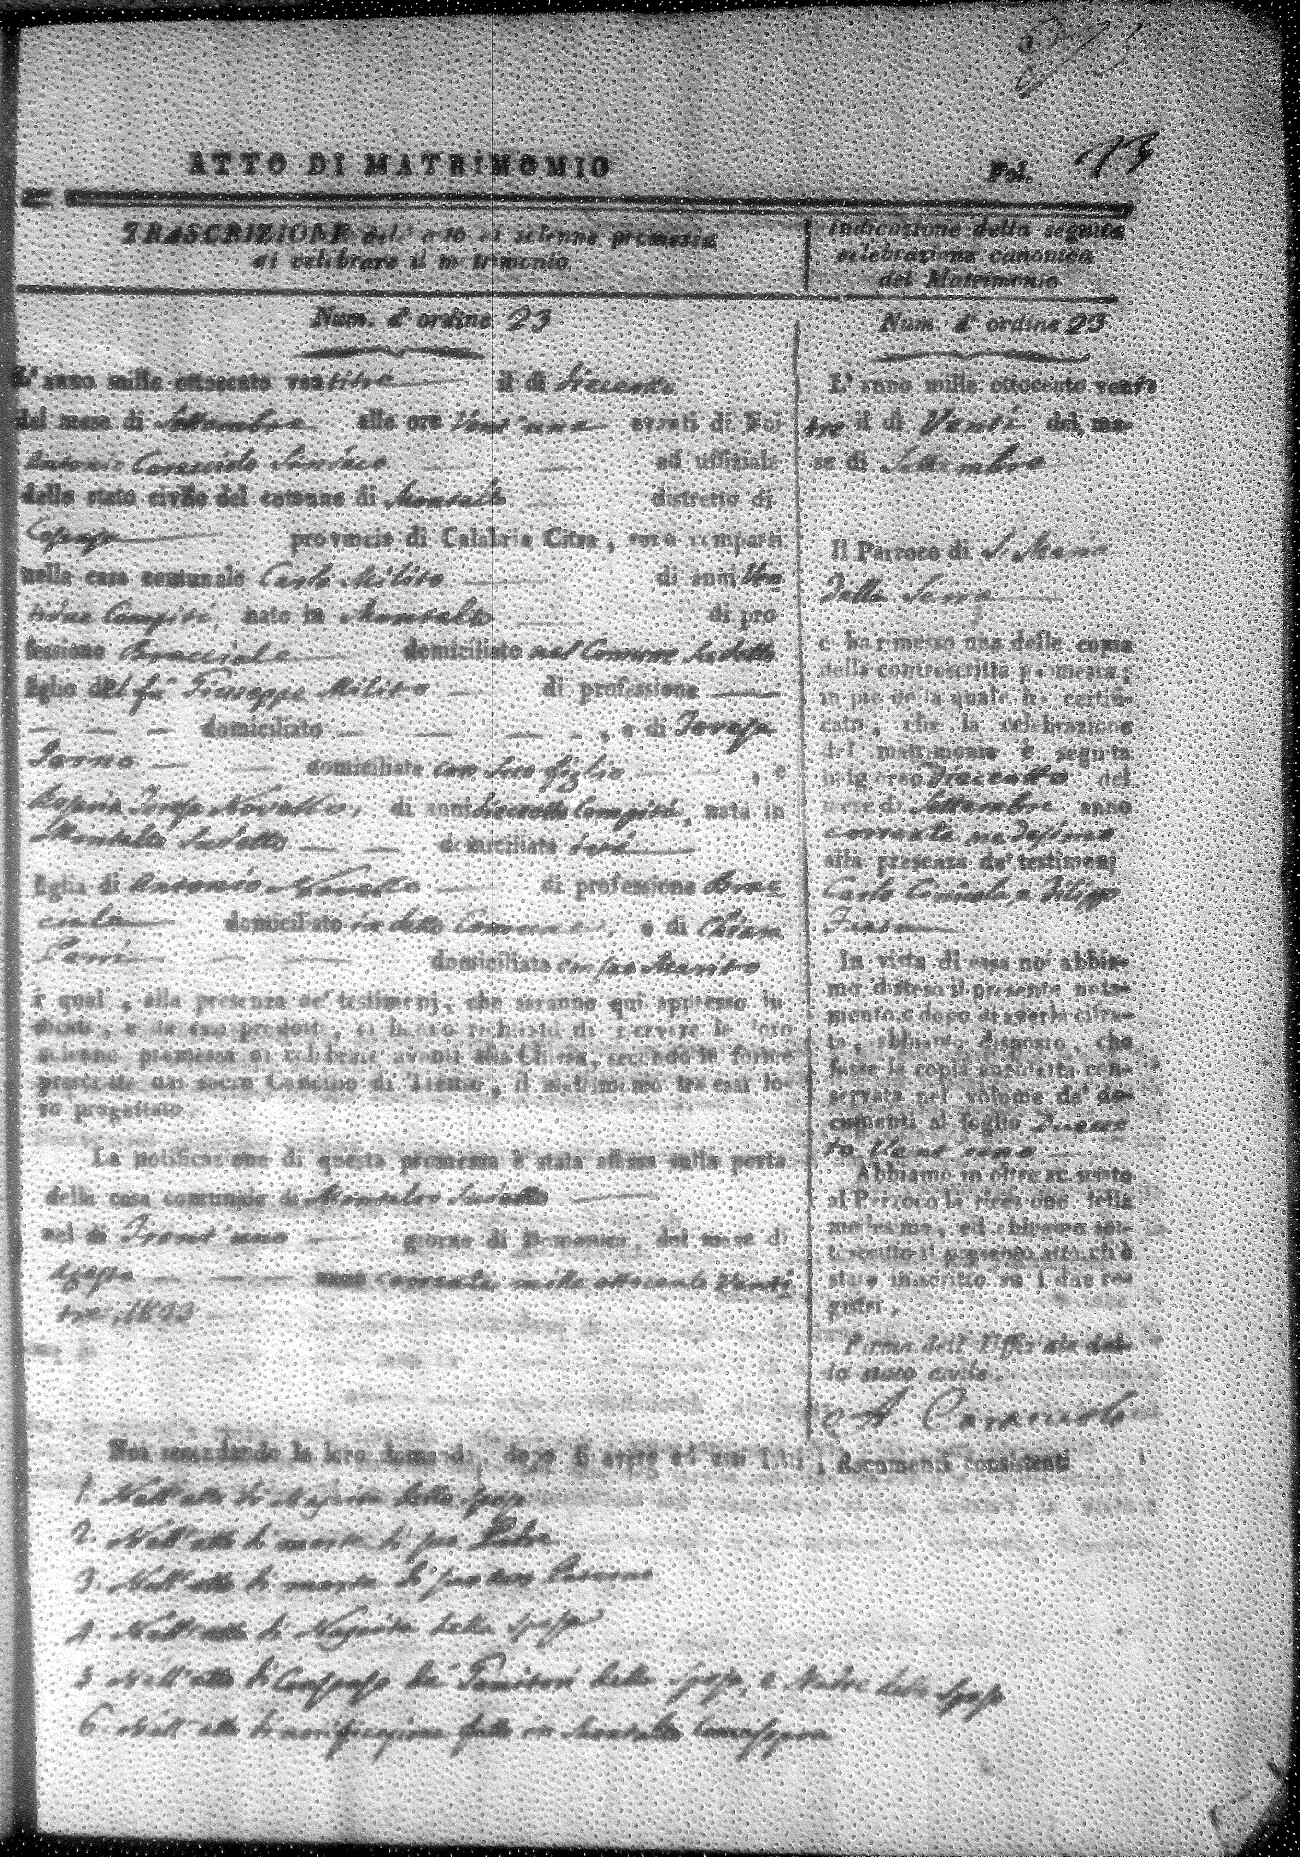 ATTO DI MATRIMONIO
Fol.
TRASCRIZIONE dell' atto di solenne promessa
di celibrare il matrimonio
Indicazione della seguita
celebrazione canonica
del Matrimonio
Num. d' ordine 23
L' anno mille ottocento ventitre il di Diecearto
del mese di Settembre alle ore vent'una avanti di Noi
Antonio Caracciolo Sindaco ed uffiziale
dello stato civile del comune di Montalto distretto di
Cosenza provincia di Calabria Citra, sono comparsi
nella casa comunale Carlo Militto di anni
compiti, nato in Montalto di pro
fessione Bracciale domiciliato nel Comune sudetto
figlio del fu Giuseppe Militto di professione
domiciliato , e di Teresa
domiciliata con suo figlio , e
Teresa Novello, di anni compiti, nata in
Montalto sudetto domiciliata
figlia di Antonio Novello di professione Brac
ciale domiciliato in detto Comune, e di Chiara
domiciliata con suo Marito
i quali, alla presenza de' testimonj, che saranno qui appresso in
dicati, e da essi prodotti, ci hanno richiesto di ricevere le loro
solenne promessa di celebrare avanti alla Chiesa, secondo le forme
prescritte dal sacro Concilio di Trento, il matrimonio tra essi lo-
ro progettato.
La notificazione di questa promessa è stata affissa sulla porta
della casa comunale di Montalto sudetto
nel di Trent'uno giorno di Domenica, del mese di
Agosto anno corrente mille ottocento venti
tre, 1823
Num. d' ordine 23
L' anno mille ottocento venti
tre il di Venti del me-
se di Settembre
Il Parroco di S. Maria
della Serra
ci ha rimesso una delle copie
della controscritta promessa;
in piè della quale ha certifi-
cato, che la celebrazione
del matrimonio è seguita
nel giorno del
mese di Settembre anno
corrente medesimo
alla presenza de' testimonj
Carlo e Filippo
In vista di essa noi abbia-
mo disteso il presente nota-
mento, e dopo di averla cifra-
ta, abbiamo disposto, che
fosse la copia anzidetta con-
servata nel volume de' do-
cumenti al foglio Duecen
to Vent'uno
Abbiamo in oltre accusato
al Parroco la ricezione della
medesima, ed abbiamo sot-
toscritto il presente atto, ch' è
stato inscritto su i due re-
gistri.
Firma dell' Uffiziale del-
lo stato civile.
A. Caracciolo
Noi secondando la loro domanda, dopo di avere ad essi letti i documenti consistenti
1. Nell' atto di Nascita dello sposo
2. Nell' atto di morte di suo Padre
3. Nell' atto di morte di suo avo Paterno
4. Nell' atto di Nascita della sposa
5. Nell' atto di Consenso de' Genitori della sposa, e Madre dello sposo
6. Nell' atto di notificazione fatta in Montalto